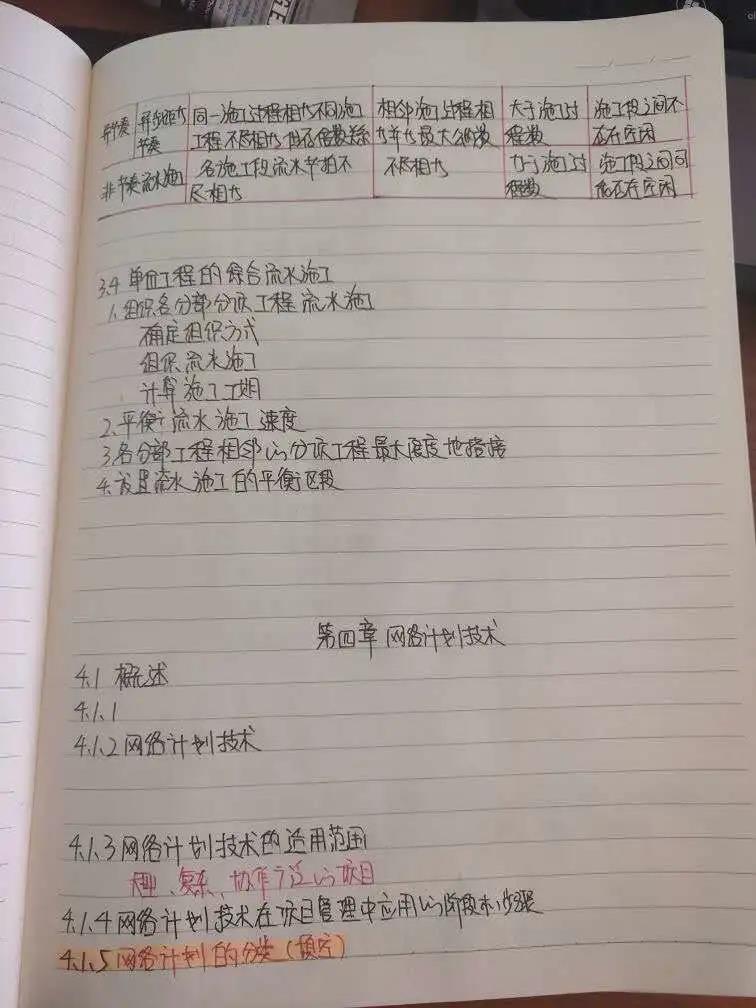 异节奏 异步距 节奏 同一施工过程相等不同施工程不尽相等但存倍数关系 相邻施工过程相等等于最大公约数 大于施工过程数 施工段之间不存在空闲
非节奏流水施工 各施工段流水节拍不尽相等 不尽相等 施工过程数 施工段之间可能存在空闲
3.4 单位工程的综合流水施工
1.组织各分部分项工程流水施工
确定组织方式
组织流水施工
计算施工工期
2.平衡流水施工速度
3.各分部工程相邻的分项工程最大限度地搭接
4.设置流水施工的平衡区段
第四章 网络计划技术
4.1 概述
4.1.1
4.1.2 网络计划技术
4.1.3 网络计划技术的适用范围
大型、复杂、协作广泛的项目
4.1.4 网络计划技术在项目管理中应用的阶段和步骤
4.1.5 网络计划的分类(填空)